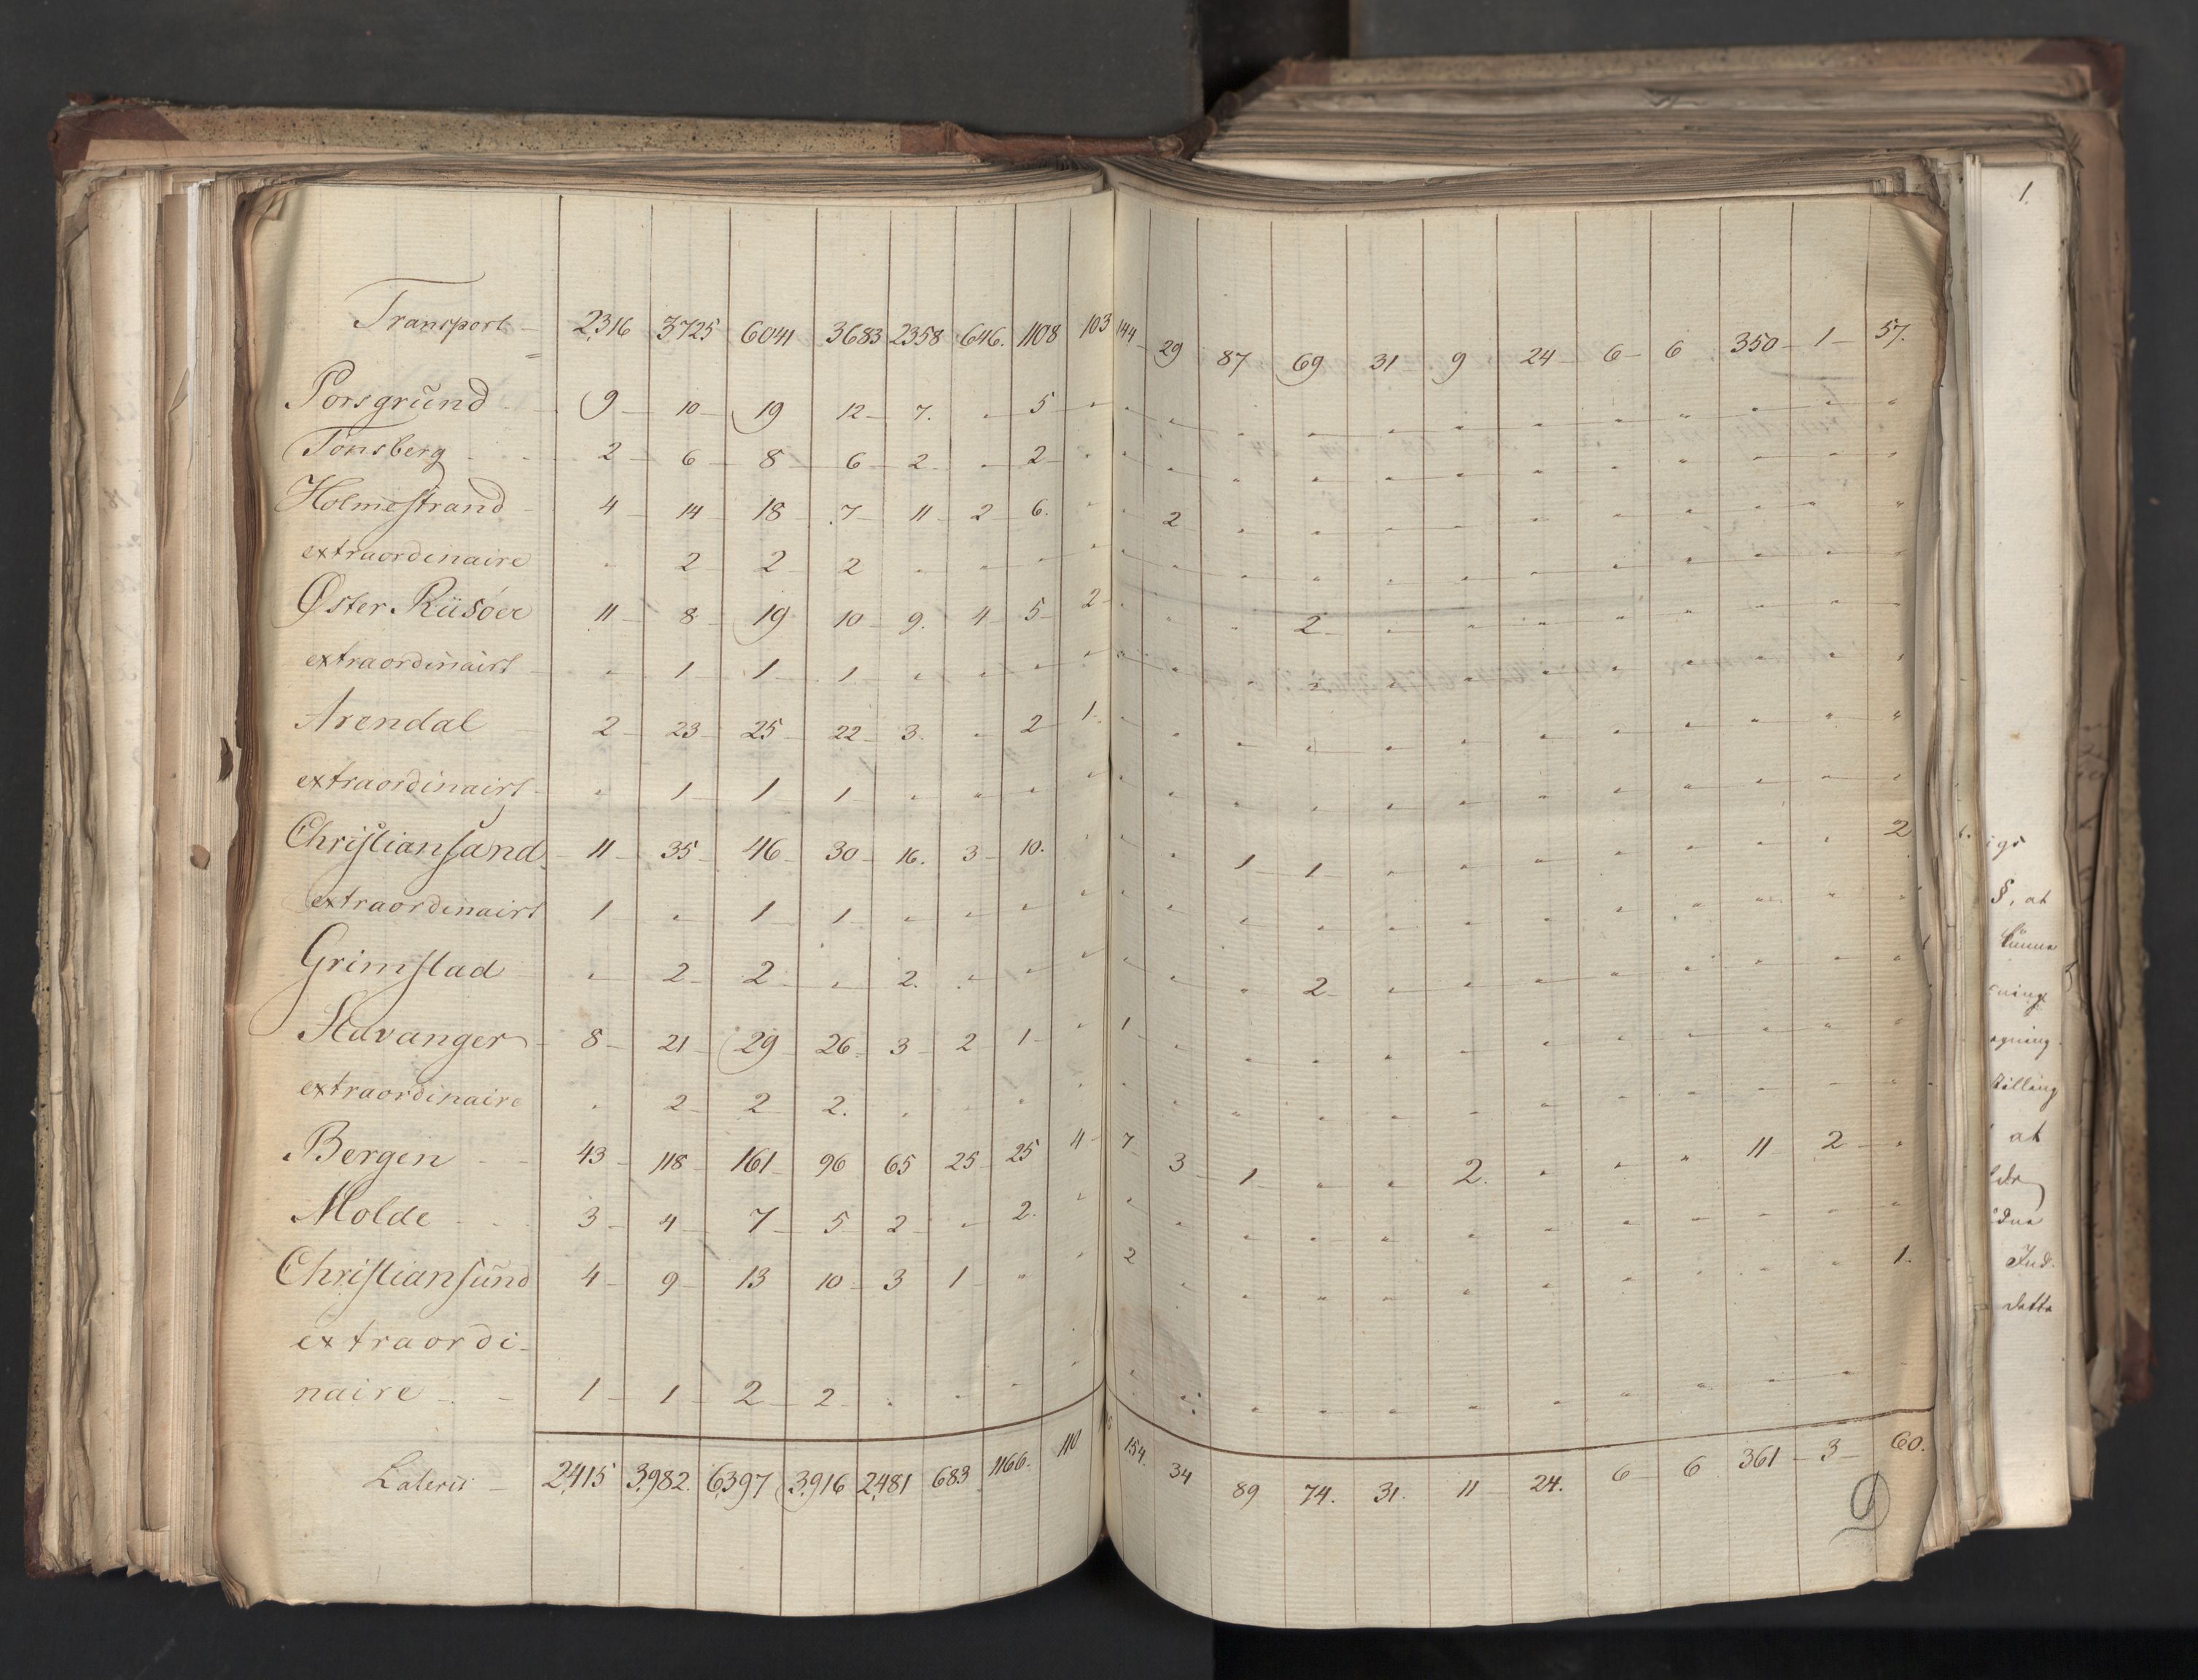 Transport - 2316 3725 6041 3683 2358 646. 1108 103 144 29 87 69 31 9 24 6 6 350 1 57.
Porsgrund 9 10 19 12 7. " 5 " " " " " " " " " " " " "
Tonsberg 2 6 8 6 2 " 2 " " " " " " " " " " " " "
Holmestrand 4 14 18 7 11 2 6. " " 2 " " " " " " " " " "
extraordinaire " 2 2 2 " " " " " " " " " " " " " " " "
Øster Riisöer 11 8 19 10 9. 4 5 2 " " " 2 " " " " " " " "
extraordinairt " 1 1 1 " " " " " " " " " " " " " " " "
Arendal 2 23 25 22 3. " 2 1. " " " " " " " " " " " "
extraordinairt " 1 1 1 " " " " " " " " " " " " " " " "
Christiansand 11 35 46 30 16. 3 10. " " " 1 1 " " " " " " " 2
extraordinairt 1 " 1 1 " " " " " " " " " " " " " " " "
Grimstad " 2 2 " 2. " " " " " " 2 " " " " " " " "
Stavanger 8 21 29 26 3 2 1 " 1 " " " " " " " " " " "
extraordinaire " 2 2 2. " " " " " " " " " " " " " " " "
Bergen 43 118 161 96 65 25 25 4 7 3 1 " " 2. " " " 11 2 "
Molde 3 4 7 5 2 " 2. " " " " " " " " " " " " "
Christiansund 4 9 13 10 3 1 " " 2 " " " " " " " " " " 1.
extraordi-
naire 1 1 2 2 " " " " " " " " " " " " " " "
Lateris - 2415 3982. 6397 3916 2481 683 1166. 110 154. 34 89 74. 31. 11 24. 6 6 361 3 60.
9
1.
§, at
at
Ind.
dette